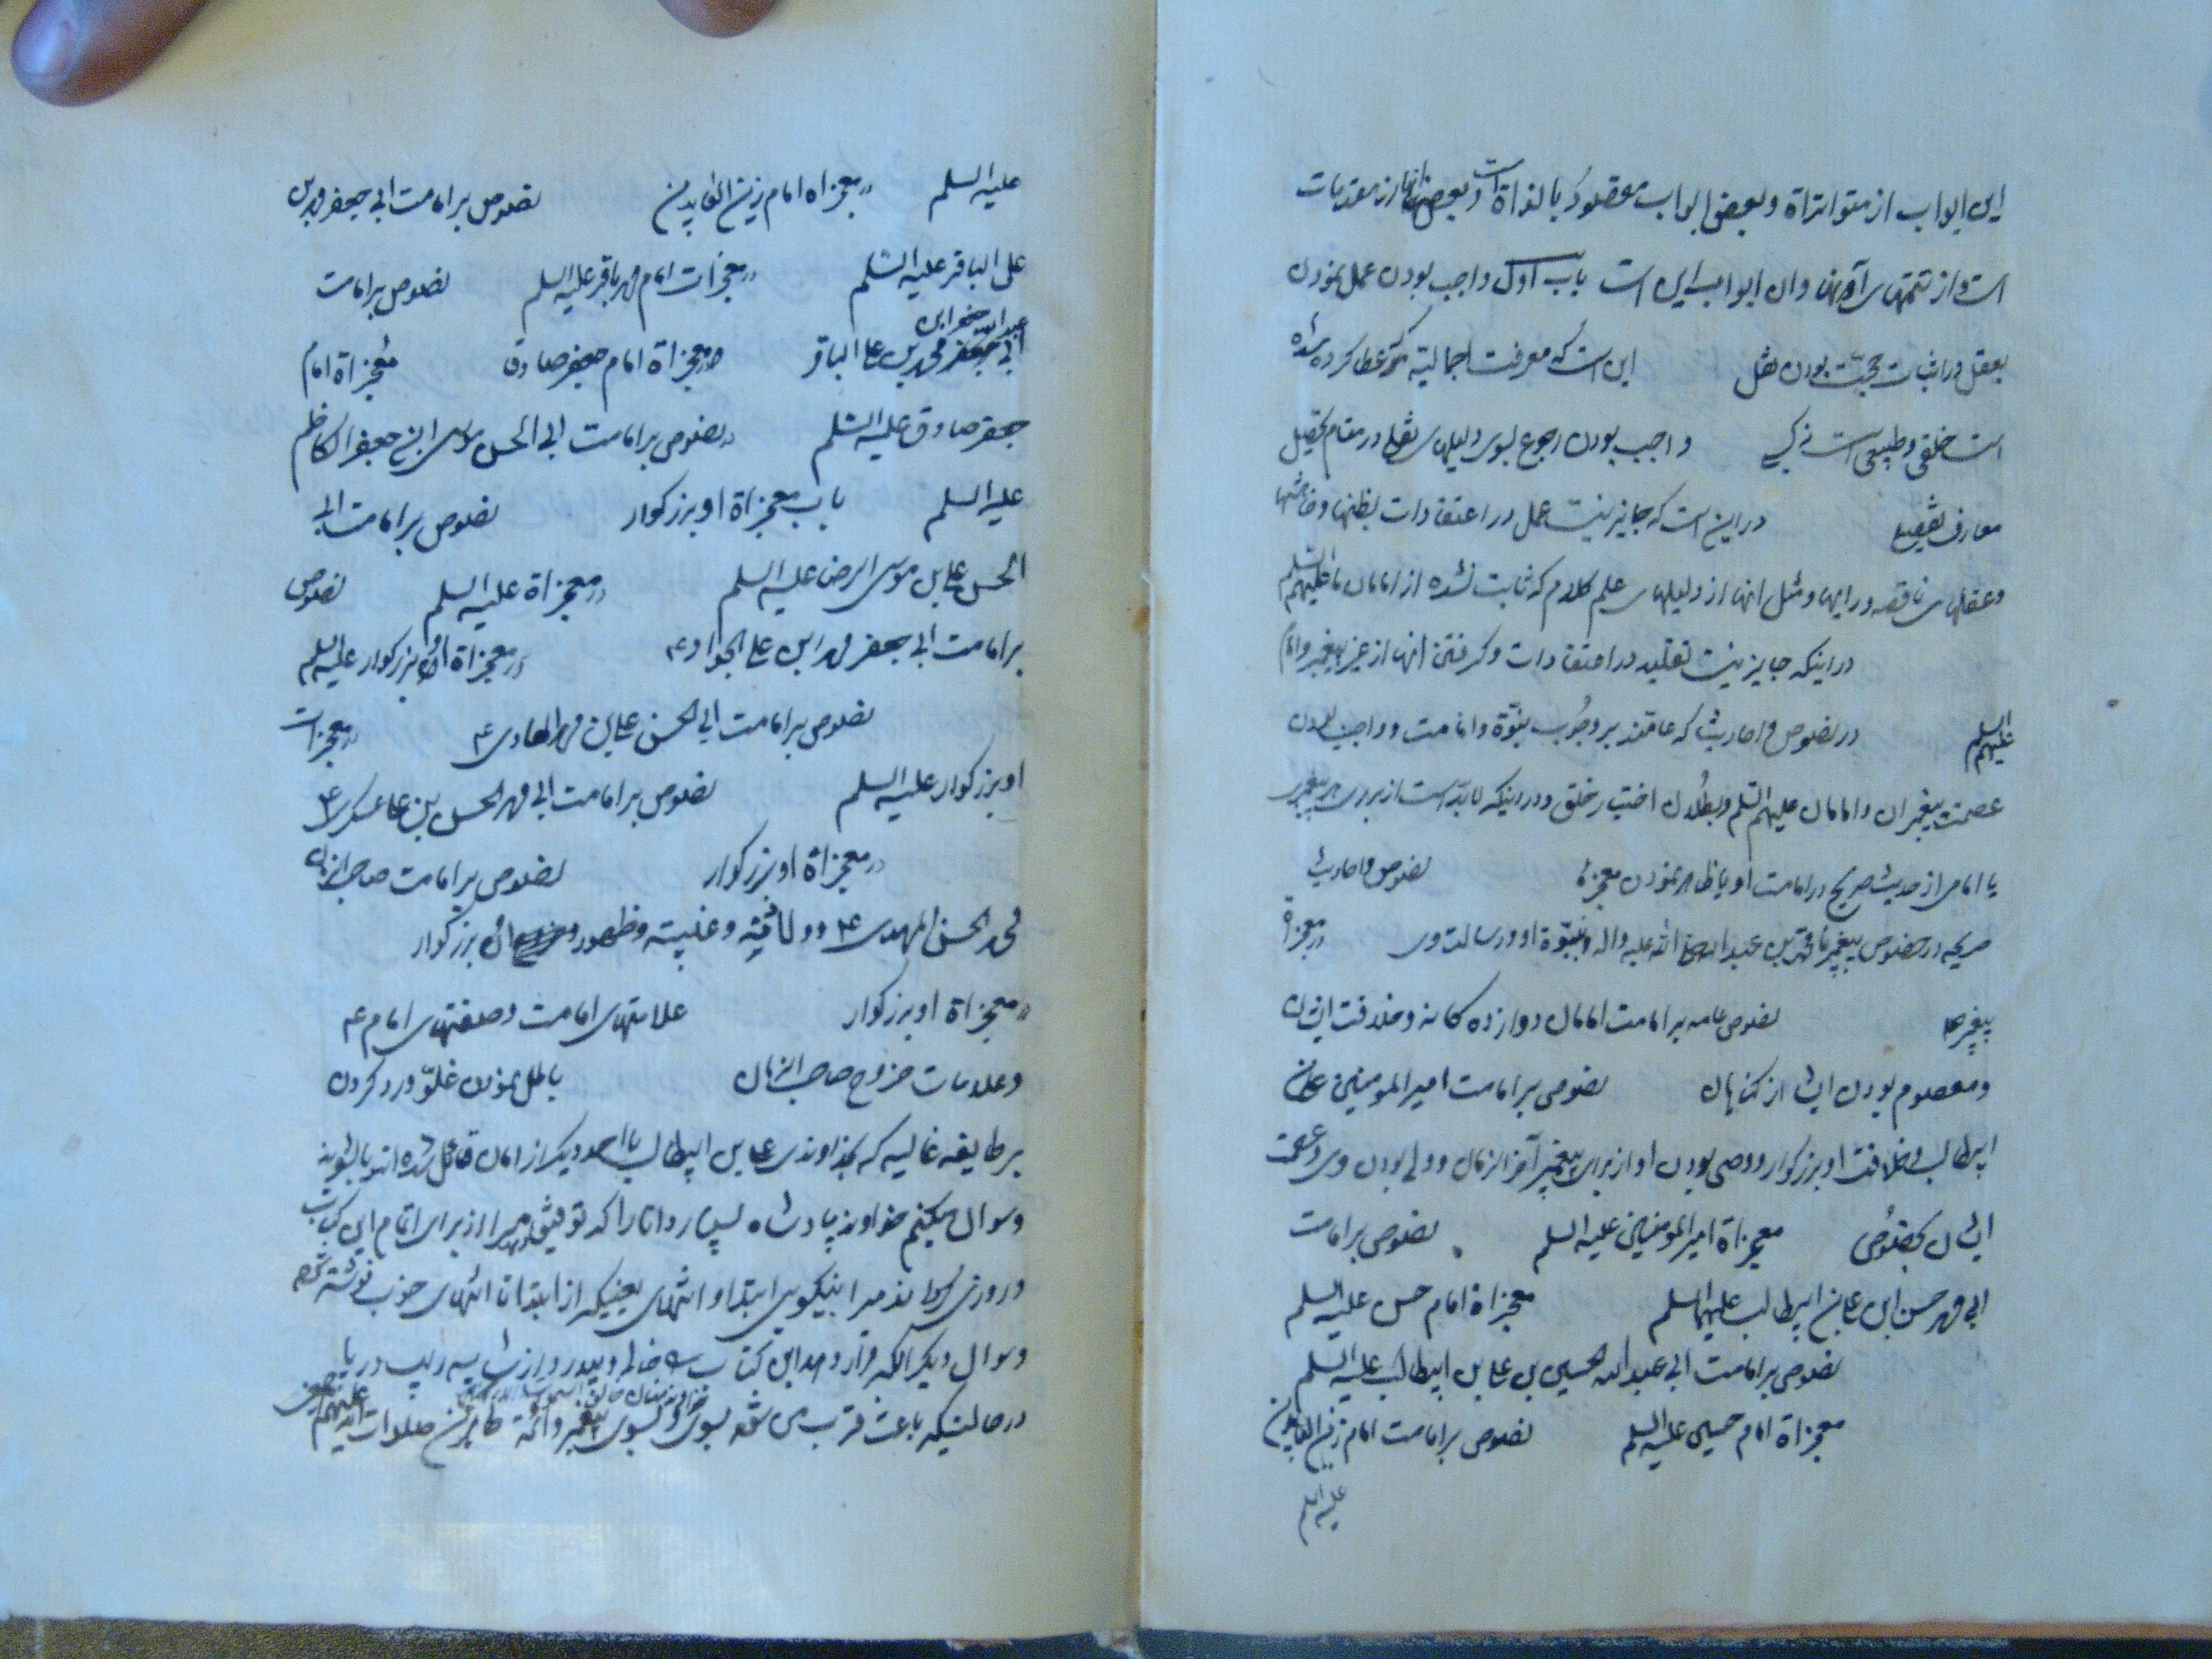 این ابواب از متواتراة و بعض ابواب مقصود بالذاة است و بعض از مقدمات
است و از تتمهای آنها و ان ابواب این است باب اول واجب بودن عمل نمودن
بعقل در اثبات حجیت بودن نقل این است که معرفت اجمالیه عطا کرده شده
است خلقی و طبیعی است نه کسبی واجب بودن رجوع بسوی دلیلهای نقلی در مقام تحصیل
معارف تفصیلی در این است که جایز نیست عمل در اعتقادات بظنها و خواهشها
و عقلهای ناقصه و رایها و مثل انها از دلیلهای علم کلام که ثابت نشده از امامان ما علیهم السلم
در اینکه جایز نیست تقلید در اعتقادات و کرفتن انها از غیر پیغمبر و امام
علیهم السلم در نصوص و احادیث که عامند بر وجوب نبوّة و امامت و واجب بودن
عصمت پیغمبران و امامان علیهم السلم و بطلان اختیار خلق و در اینکه لابدّ است از برای هر پیغمبری
یا امامی از حدیث صریح در امامت او یا ظاهر نمودن معجزه نصوص و احادیث
صریحه در خصوص پیغمبر ما محمد بن عبدالله صلی الله علیه واله و نبوّة او و رسالت وی در معجزاة
پیغمبر ص نصوص عامه بر امامت امامان دوازده کانه و خلافت ایشان
و معصوم بودن ایشان از کناهان نصوص بر امامت امیر المومنین علی بن
ابیطالب و خلافت او بزرکوار و وصی بودن او از برای پیغمبر آخر الزمان و ولی بودن وی و عصمت
ایشان بخصوص معجزاة امیر المومنین علیه السلم نصوص بر امامت
ابی محمد حسن ابن علی بن ابیطالب علیهما السلم معجزاة امام حسن علیه السلم
نصوص بر امامت ابی عبدالله الحسین بن علی بن ابیطالب علیه السلم
معجزاة امام حسین علیه السلم نصوص بر امامت امام زین العابدین
علیه السلم
علیه السلم در معجزاة امام زین العابدین نصوص بر امامت ابی جعفر محمد بن
علی الباقر علیه السلم در معجزات امام محمد باقر علیه السلم نصوص بر امامت
عبدالله جعفر ابن
ابی جعفر محمد بن علی الباقر در معجزاة امام جعفر صادق معجزاة امام
جعفر صادق علیه السلم در نصوص بر امامت ابی الحسن موسی ابن جعفر الکاظم
علیه السلم باب معجزاة او بزرکوار نصوص بر امامت ابی
الحسن علی بن موسی الرضا علیه السلم در معجزاة علیه السلم نصوص
بر امامت ابی جعفر محمد ابن علی الجواد ع در معجزاة او بزرکوار علیه السلم
نصوص بر امامت ابی الحسن علی بن محمد الهادی ع در معجزات
او بزرکوار علیه السلم نصوص بر امامت ابی محمد الحسن بن علی عسکری ع
در معجزاة او بزرکوار نصوص بر امامت صاحب الزمان
محمد الحسن المهدی ع و ولادت و غیبته و ظهور ان بزرکوار
در معجزاة او بزرکوار علامتهای امامت و صفتهای امام ع
و علامات خروج صاحب الزمان باطل نمودن غلوّ و رد کردن
بر طایفه غالیه که بخداوندی علی بن ابیطالب یا احد دیکر از امامان قائل شده اند
و سوال میکنم خداوند پادشاه بسیار دانا را که توفیق دهد مرا از برای اتمام این کتاب
و روزی کرداند مرا بنیکویی ابتدا و انتهای یعنیکه از ابتدا تا انتهای خوب نوشته
و سوال دیکر انکه قرار دهد این کتاب خالص
در حالتیکه باعث قرب می شود بسوی و بسوی پیغمبر و ائمة طاهرین صلوات الله علیهم